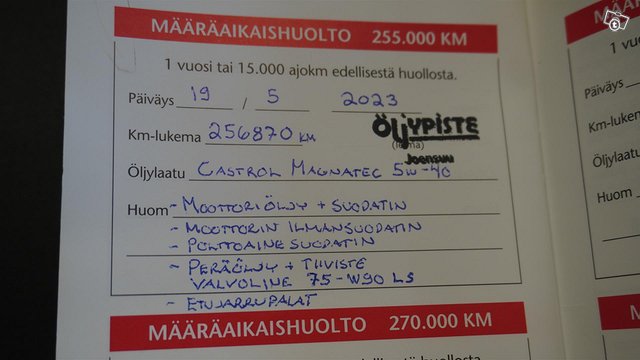 MÄÄRÄAIKAISHUOLTO 255.000 KM
1 vuosi tai 15.000 ajokm edellisestä huollosta.
Päiväys 19 / 5 2023
Km-lukema 256870 KM
ÖLJYPISTE
Joensuu
Öljylaatu CASTROL MAGNATEC 5W-40
Huom - MOOTTORIÖLJY + SUODATIN
- MOOTTORIN ILMANSUODATIN
- POLTTOAINE SUODATIN
- PERÄÖLJY + TIIVISTE
VALVOLINE 75-W90 LS
- ETUJARRUPALAT
MÄÄRÄAIKAISHUOLTO 270.000 KM
1 vuo
Päiväys
Km-lukem
Öljylaatu
Huom